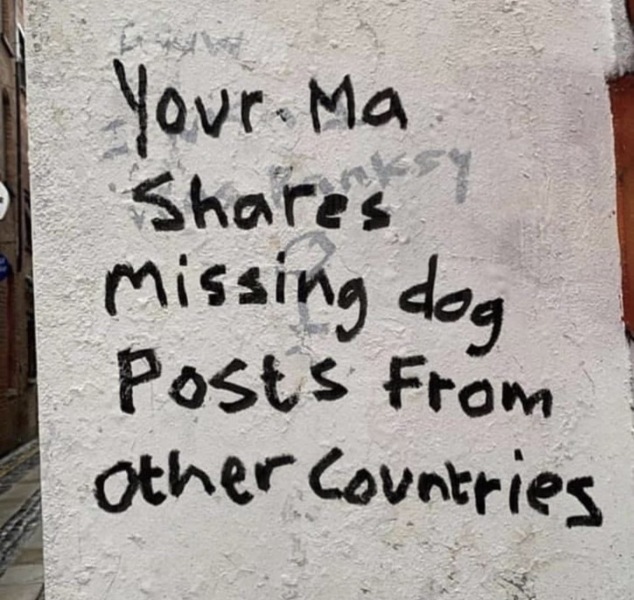 Your Ma
Shares
missing dog
Posts From
other Countries